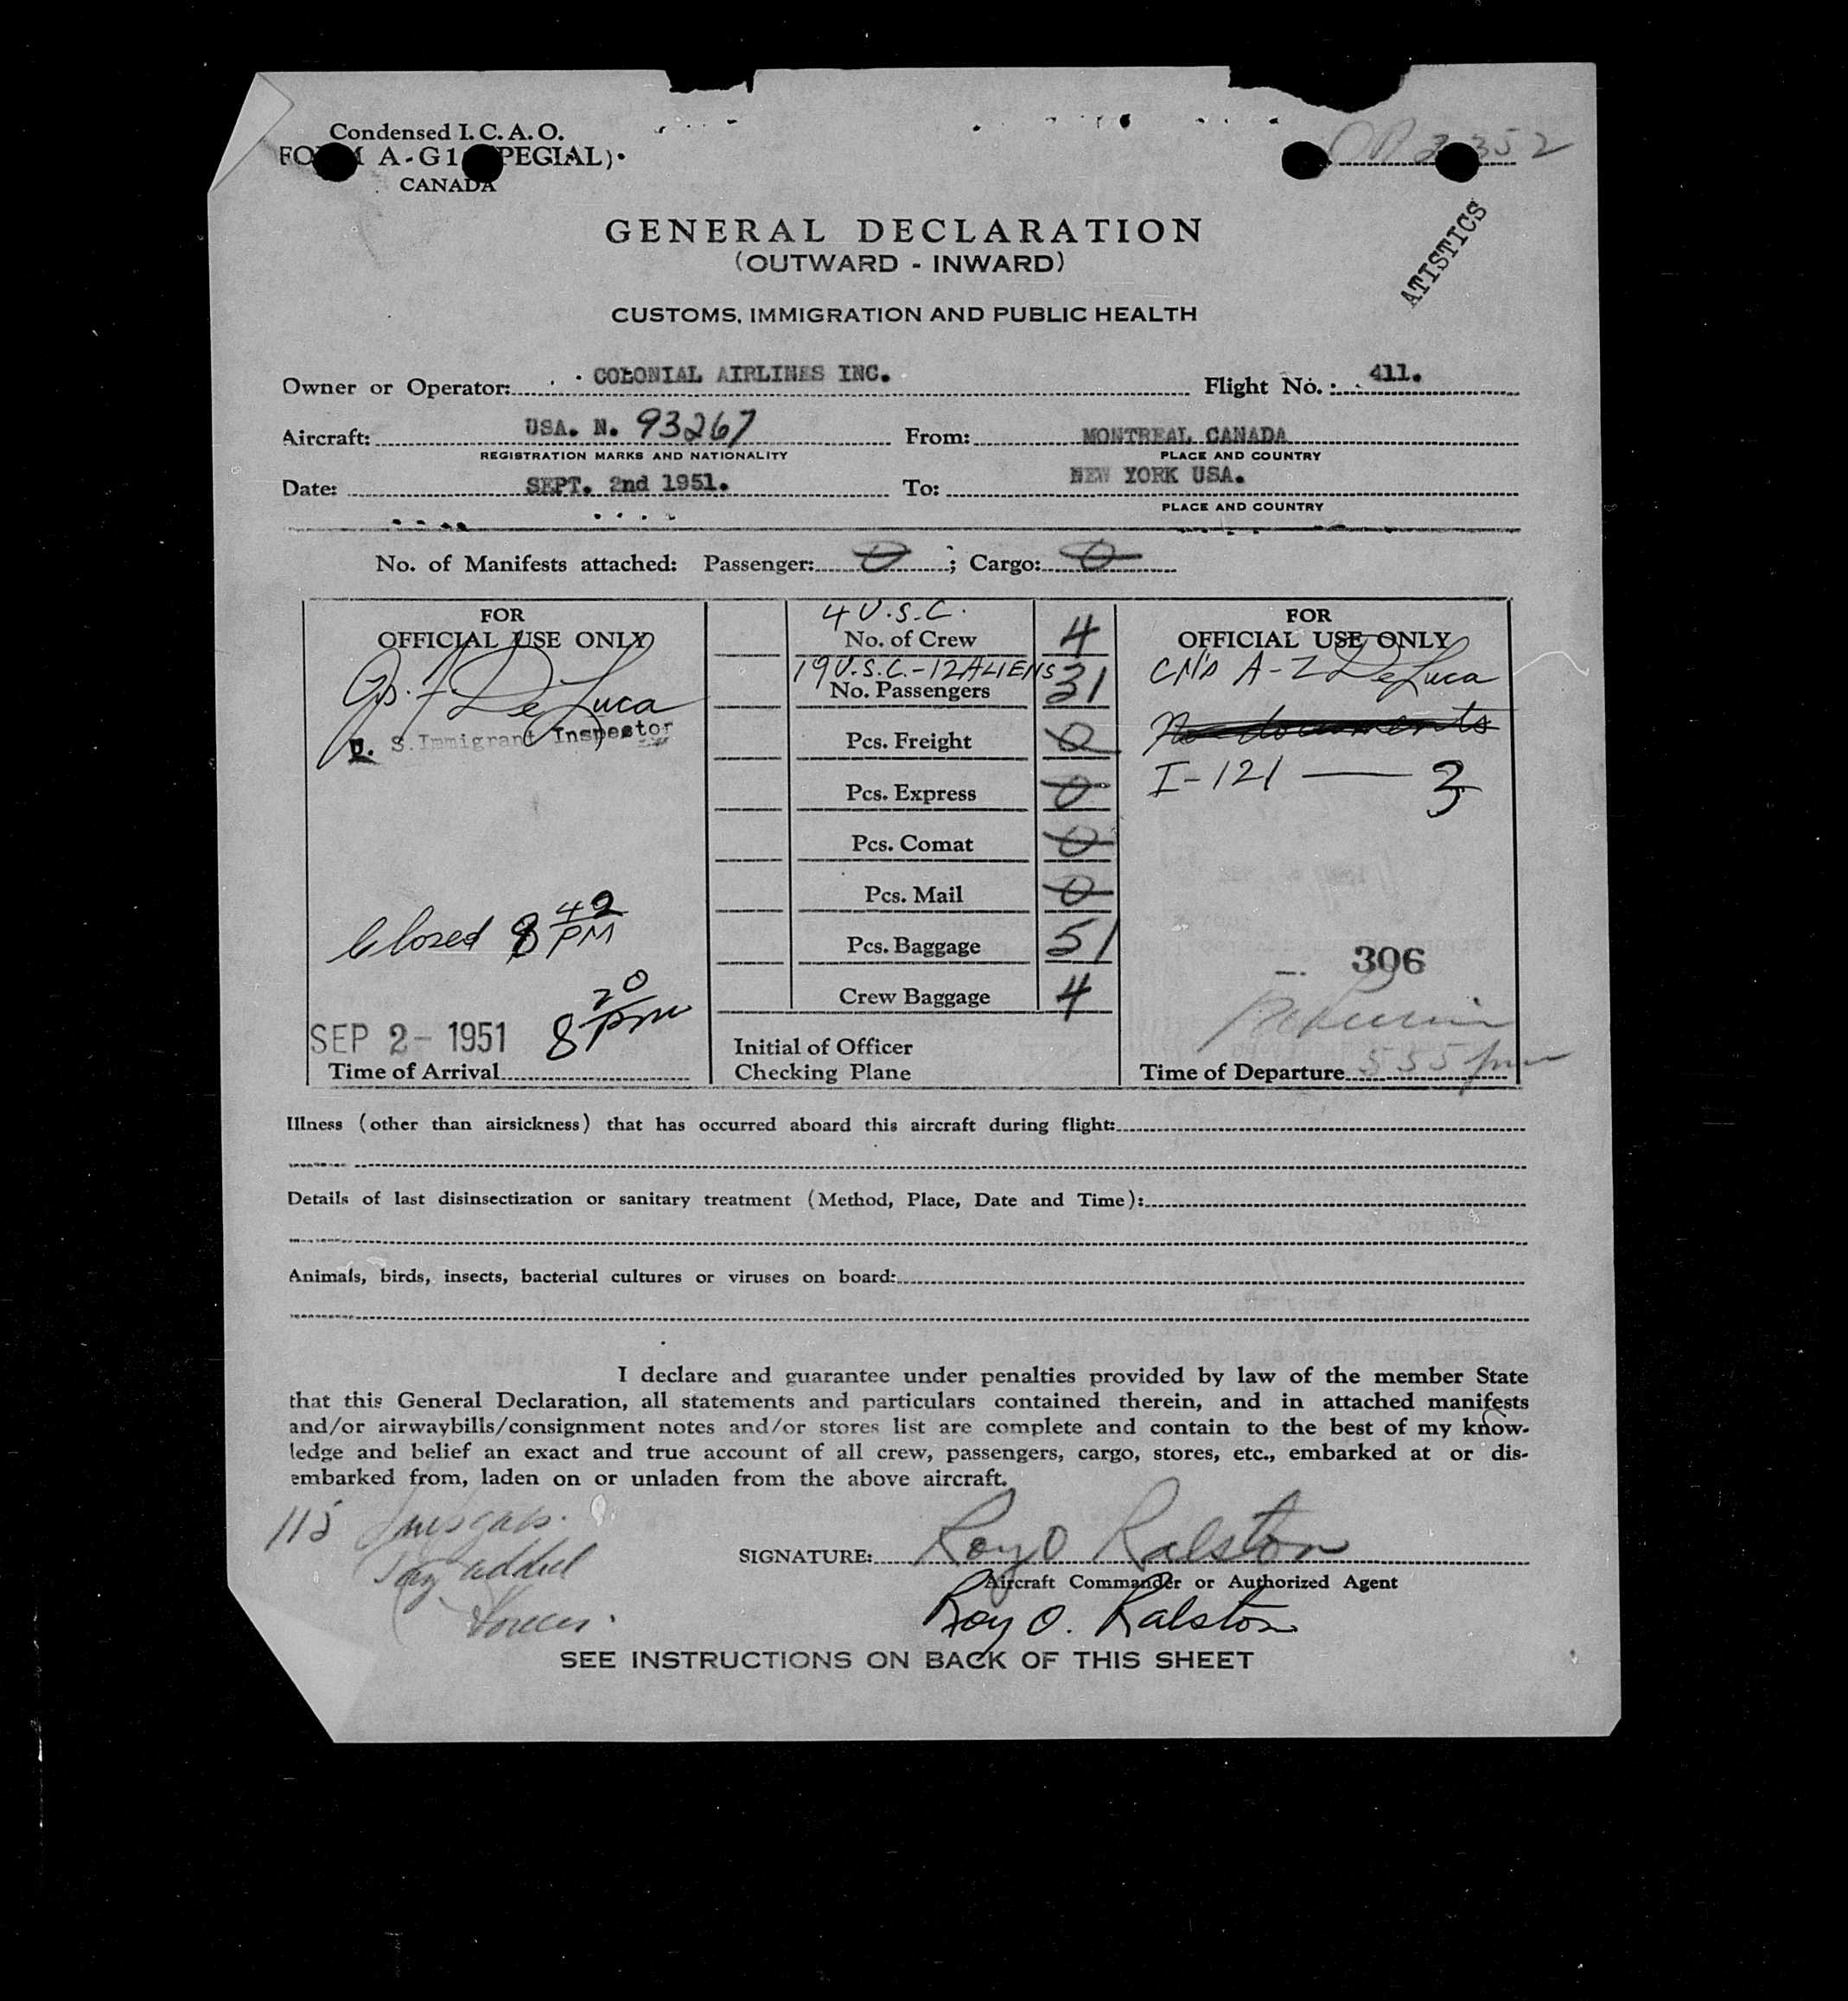 Condensed I. C. A. O.
A - G1 PECIAL)
CANADA
352
ATISTICS
GENERAL DECLARATION
(OUTWARD - INWARD)
CUSTOMS, IMMIGRATION AND PUBLIC HEALTH
Owner or Operator: COLONIAL AIRLINES INC. Flight No.: 411.
Aircraft: USA. N. 93267 From: MONTREAL CANADA
REGISTRATION MARKS AND NATIONALITY PLACE AND COUNTRY
Date: SEPT. 2nd 1951. To: NEW YORK USA.
PLACE AND COUNTRY
No. of Manifests attached: Passenger: 0 ; Cargo: 0
FOR
OFFICIAL USE ONLY
De Luca
U. S. Immigrant Inspector
Closed 8 42 PM
SEP 2 - 1951 8 20 pm
Time of Arrival
4 U.S.C.
No. of Crew 4
19 U.S.C. - 12 ALIENS
No. Passengers 31
Pcs. Freight 0
Pcs. Express 0
Pcs. Comat 0
Pcs. Mail 0
Pcs. Baggage 51
Crew Baggage 4
Initial of Officer
Checking Plane
FOR
OFFICIAL USE ONLY
A-Z De Luca
No documents
I-121 — 3
306
Time of Departure 5 55 pm
Illness (other than airsickness) that has occurred aboard this aircraft during flight:
Details of last disinsectization or sanitary treatment (Method, Place, Date and Time):
Animals, birds, insects, bacterial cultures or viruses on board:
I declare and guarantee under penalties provided by law of the member State
that this General Declaration, all statements and particulars contained therein, and in attached manifests
and/or airwaybills/consignment notes and/or stores list are complete and contain to the best of my know-
ledge and belief an exact and true account of all crew, passengers, cargo, stores, etc., embarked at or dis-
embarked from, laden on or unladen from the above aircraft.
115
added
SIGNATURE: Roy O Ralston
Aircraft Commander or Authorized Agent
Roy O. Ralston
SEE INSTRUCTIONS ON BACK OF THIS SHEET